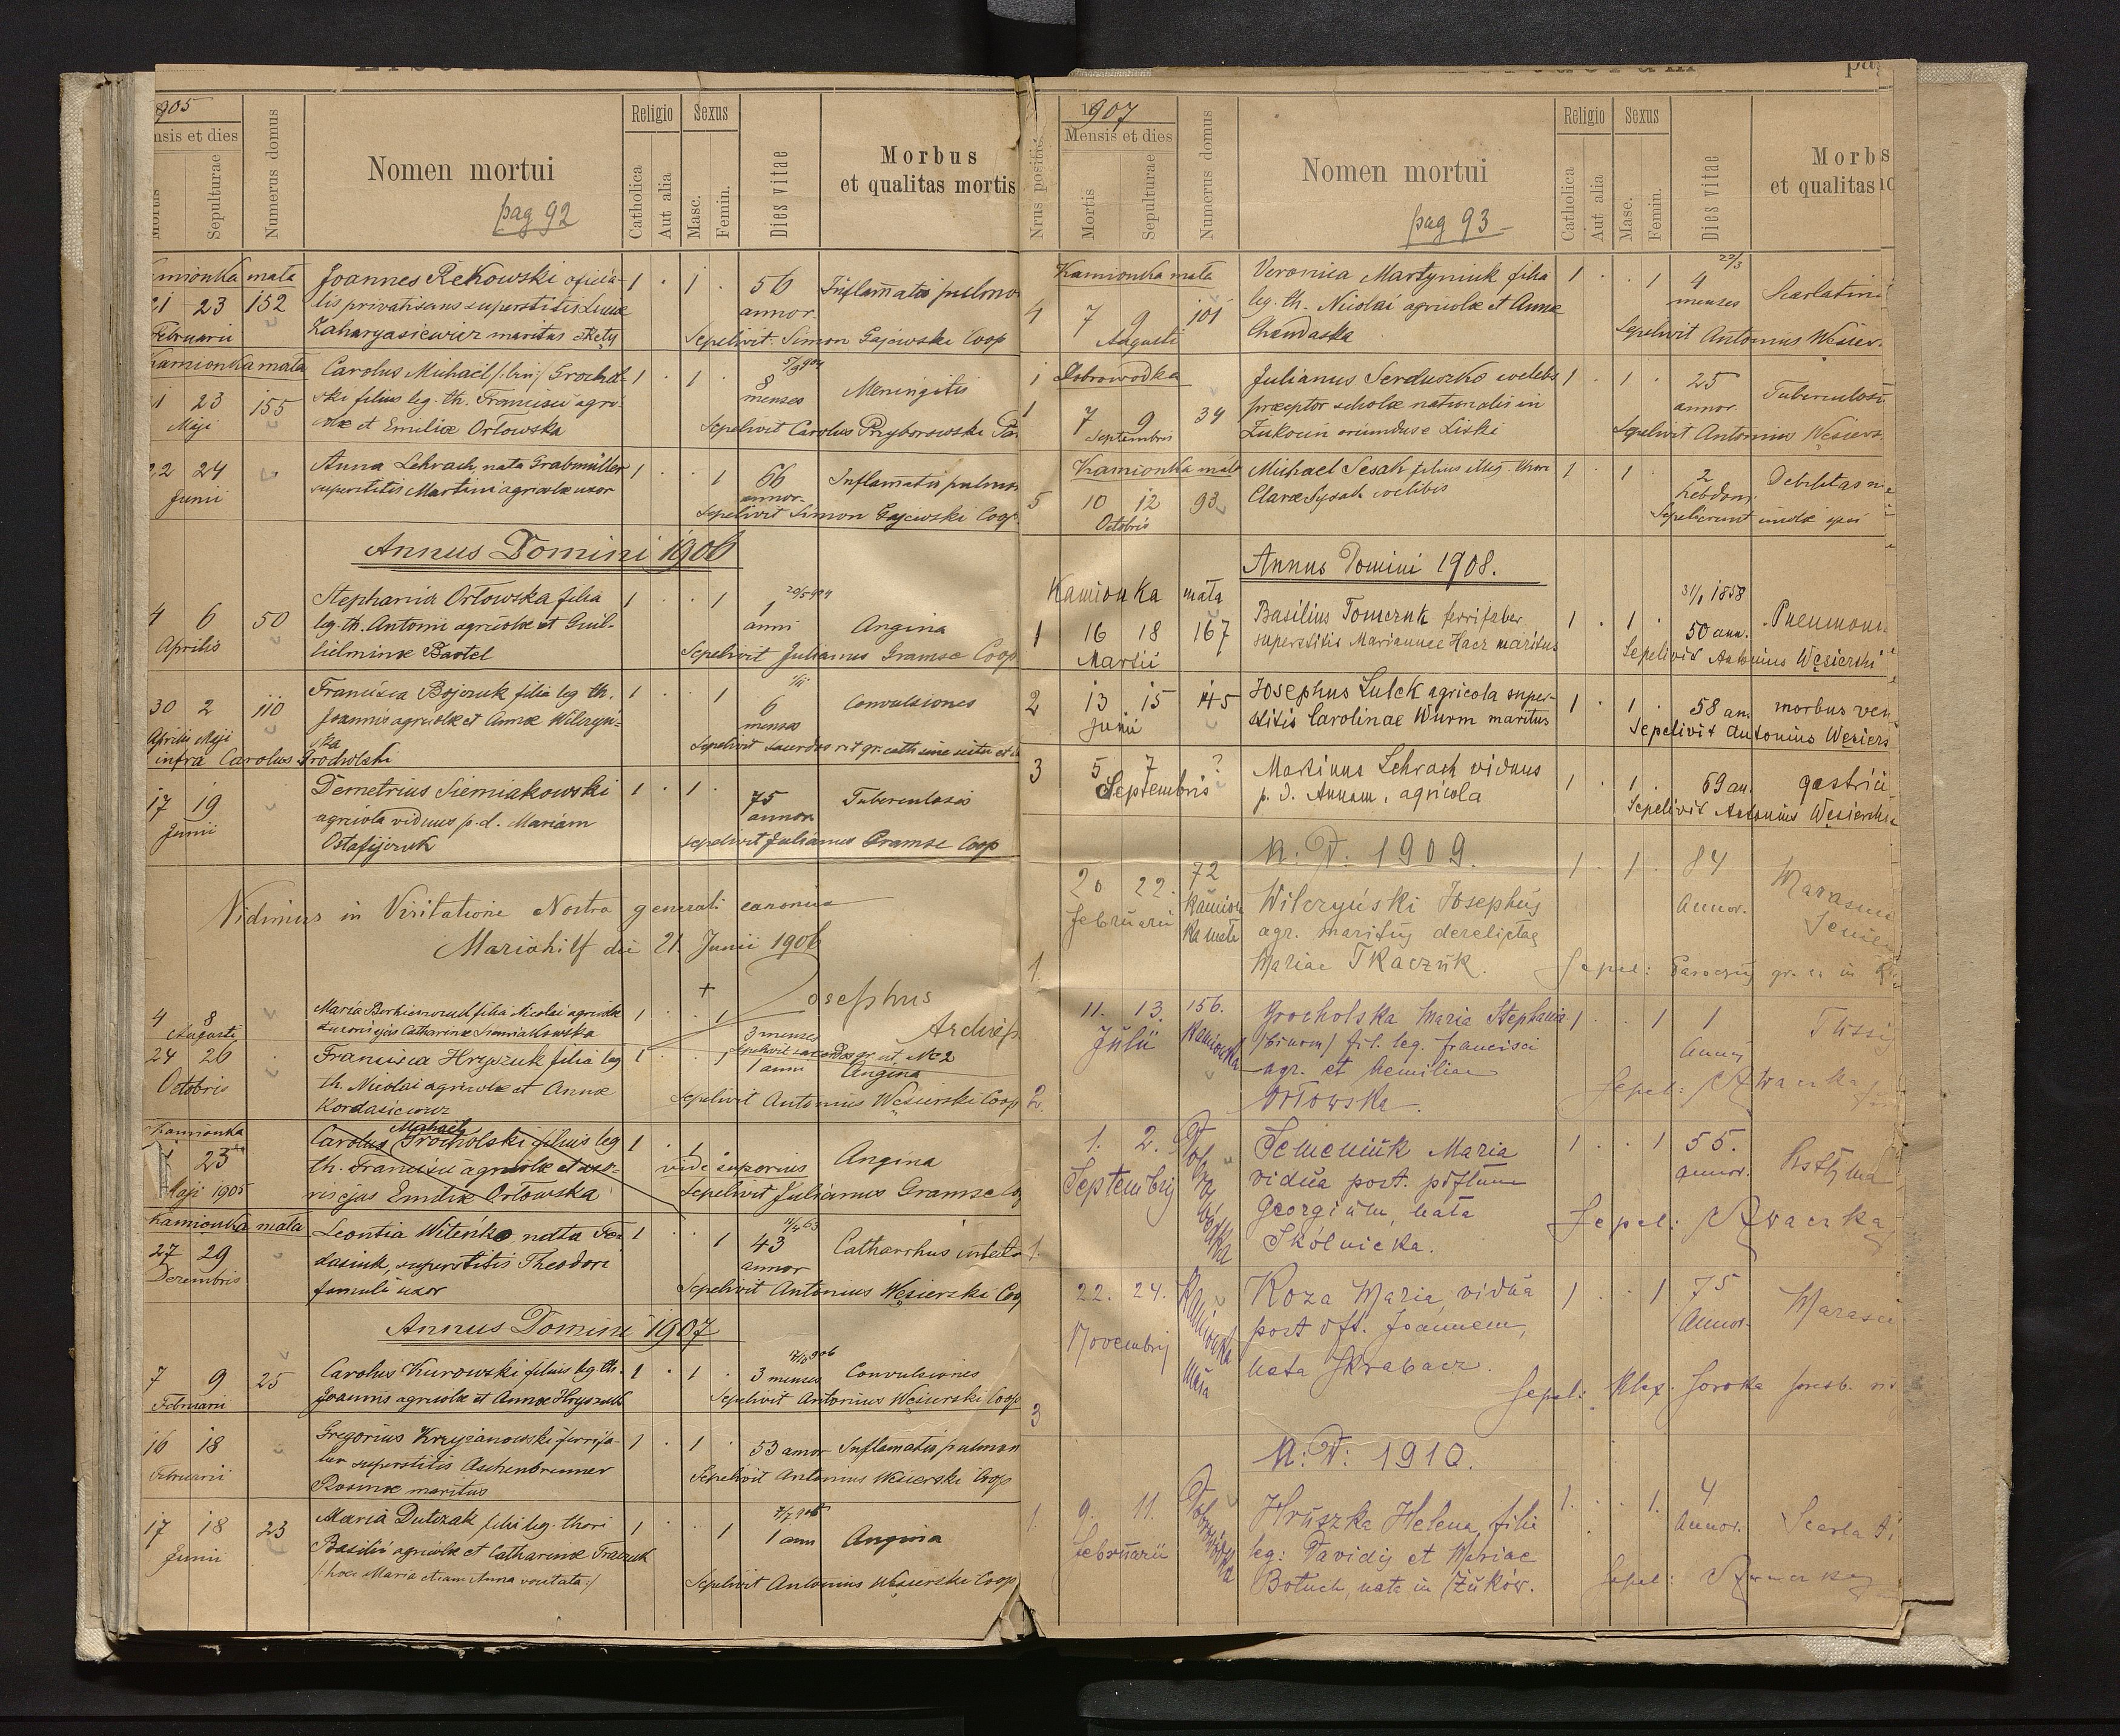 1905
Mensis et dies
Mortis
Sepulturae
Numerus domus
Nomen mortui
pag 92
Religio
Catholica
Aut alia
Sexus
Masc.
Femin.
Dies vitae
Morbus
et qualitas mortis
Kamionka mała
21 23 152
Februarii
Joannes Rekowski officia-
lis privatisans superstitis
Zaharyasiewicz maritus
1 1
56
annor
Inflamatio pulmo
Sepelivit: Simon Gajewski Coop
Kamionka mała
23 155
Maji
Carolus Michael /: bin :/ Grochol-
ski filius leg. th. Francisci agri-
colæ et Emiliæ Orłowska
1 1
8
menses
Meningitis
Sepelivit Carolus Przyborowski
22 24
Junii
Anna Lehrach nata Grabmüller
superstitis Martini agricolæ uxor
1 1
66
annor.
Inflamatio pulmon
Sepelivit Simon Gajewski Coop.
Annus Domini 1906
4 6 50
Aprilis
Stephania Orłowska filia
leg. th. Antonii agricolæ et Guil-
helminæ Bartel
1 1
1
anni
Angina
Sepelivit Julianus Gramse Coop
30 2 110
Aprilis Maji
Francisca Bojczuk filia leg th.
Joannis agricolæ et Annæ Wilczyń-
ska
1 1
6
menses
Convulsiones
Sepelivit sacerdos rit gr. cath
infra Carolus Grocholski
17 19
Junii
Demetrius Siemiakowski
agricola viduus p. d. Mariam
Ostafijczuk
1 1
75
annor
Tuberculosis
Sepelivit Julianus Gramse Coop
Vidimus in Visitatione Nostra generali canonica
Mariahilf die 21. Junii 1906
+ Josephus
Archiep
4 8
Augusti
Maria filia Nicolai agricolæ
uxoris ejus Catharinæ Siemiakowska
1 1
3 menses
Sepelivit sacerdos gr. ut No 2
24 26
Octobris
Francisca Hryszuk filia leg
th. Nicolai agricolæ et Annæ
Kordasiewicz
1 1
1 anni
Angina
Sepelivit Antonius Węsierski Coop
Kamionka
23
Maji 1905
Michael
Carolus Grocholski filius leg
th. Francisci agricolæ et uxo-
ris ejus Emiliæ Orłowska
1 1
vide superius
Angina
Sepelivit Julianus Gramse Co
Kamionka mała
27 29
Decembris
Leontia Witeńko nata
superstitis Theodori
famuli uxor
1 1
43
annor
Catharrhus
Sepelivit Antonius Węsierski Coo
Annus Domini 1907
7 9 25
Februarii
Carolus Kurowski filius leg th.
Joannis agricolæ et Annæ Hryszuk
1 1
3 menses
Convulsiones
Sepelivit Antonius Węsierski Coop
16 18
Februarii
Gregorius Krzyżanowski ferrifa-
ber superstitis Aschenbrenner
Rosinæ maritus
1 1
53 annor
Inflamatio pulmon
Sepelivit Antonius Węsierski Coop
17 18 23
Junii
Maria Dutczak filia leg. thori
Basilii agricolæ et Catharinæ Tkaczuk
/: hæc Maria etiam Anna vocitata :/
1 1
1 ann
Angina
Sepelivit Antonius Węsierski Coop
1907
Nrus positio
Mensis et dies
Mortis
Sepulturae
Numerus domus
Nomen mortui
pag 93
Religio
Catholica
Aut alia
Sexus
Masc.
Femin.
Dies vitae
Morbs
et qualitas
Kamionka mała
4 7 9 101
Augusti
Veronica Martyniuk filia
leg. th. Nicolai agricolæ et Annæ
1 1
4
menses
Scarlatina
Sepelivit Antonius Węsier
Dobrowódka
1 7 9 34
Septembris
Julianus Serduszko coelebs
præceptor scholæ nationalis in
Żukocin oriundus e Liski
1 1
25
annor.
Tuberculosis
Sepelivit Antonius Węsiers
Kamionka mała
5 10 12 93
Octobris
Michael Sesak filius illeg. thori
Claræ Sysak coelibis
1 1
2
hebdom.
Debilitas
Annus Domini 1908.
Kamionka mała
1 16 18 167
Martii
Basilius Tomczuk ferrifaber
superstitis Mariannae Hacz maritus
1 1
31/1 1858
50 ann.
Pneumoni
Sepelivit Antonius Węsierski
2 13 15 145
Junii
Josephus Lulek agricola super-
stitis Carolinae Wurm maritus
1 1
58 an.
morbus ven
Sepelivit Antonius Węsiers
3 5 7 ?
Septembris
Martinus Lehrach viduus
p. d. Annam, agricola
1 1
69 an.
gastrii
Sepelivit Antonius Węsierski
A: D: 1909.
1. 20 22. 72
Februarii
Kamion
ka mała
Wilczyński Josephus
agr. maritus derelictae
Mariae Tkaczuk.
1 1
84
Annor.
Marasmus
Senil
Sepel: Parochus gr. c. in K
2. 11. 13. 156.
Julii Kamionka
Grocholska Maria Stephania
/binom/ fil. leg. Francisci
agr. et Aemiliae
Orłowska.
1 1
1
Annus
Tussis
Sepel:
1. 1. 2. Dobrowódka
Septembris
Semeniuk Maria
vidua post. pdftum
Georgium, nata
Skólnicka.
1 1
55.
annor.
Asthma
Sepel:
3 22. 24. Kamionka Mała
Novembris
Koza Maria, vidua
post dft. Joannem,
nata Skrabacz.
1 1
75
Annor.
Marasm
Sepel: Alex. Soroka
A: D: 1910.
1. 9. 11. Dobrowódka
Februarii
Hruszka Helena, filia
leg: Davidis et Mariae
Botuch, nata in Żuków.
1. 1.
4
Annor.
Scarlati
Sepel: